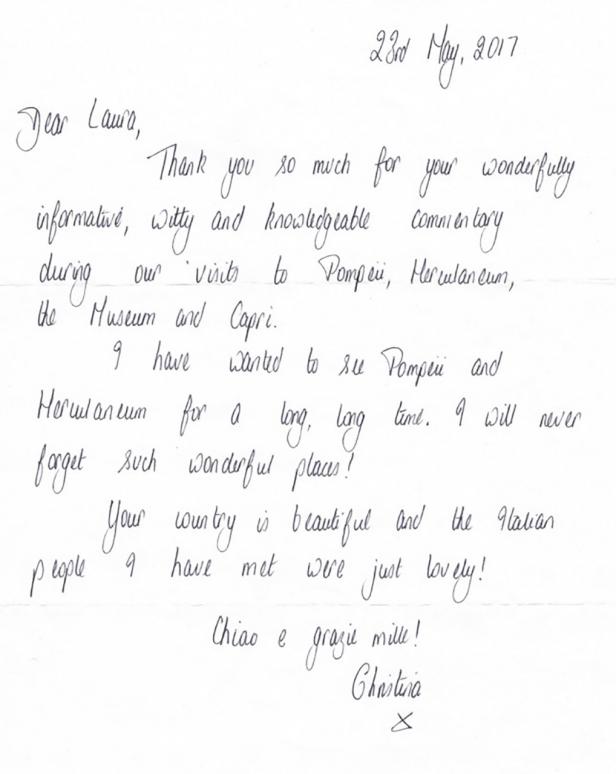 23rd May, 2017
Dear Laura,
Thank you so much for your wonderfully
informative, witty and knowledgeable commentary
during our visits to Pompeii, Herculaneum,
the Museum and Capri.
I have wanted to see Pompeii and
Herculaneum for a long, long time. I will never
forget such wonderful places!
Your country is beautiful and the Italian
people I have met were just lovely!
Chiao e grazie mille!
Christina
X